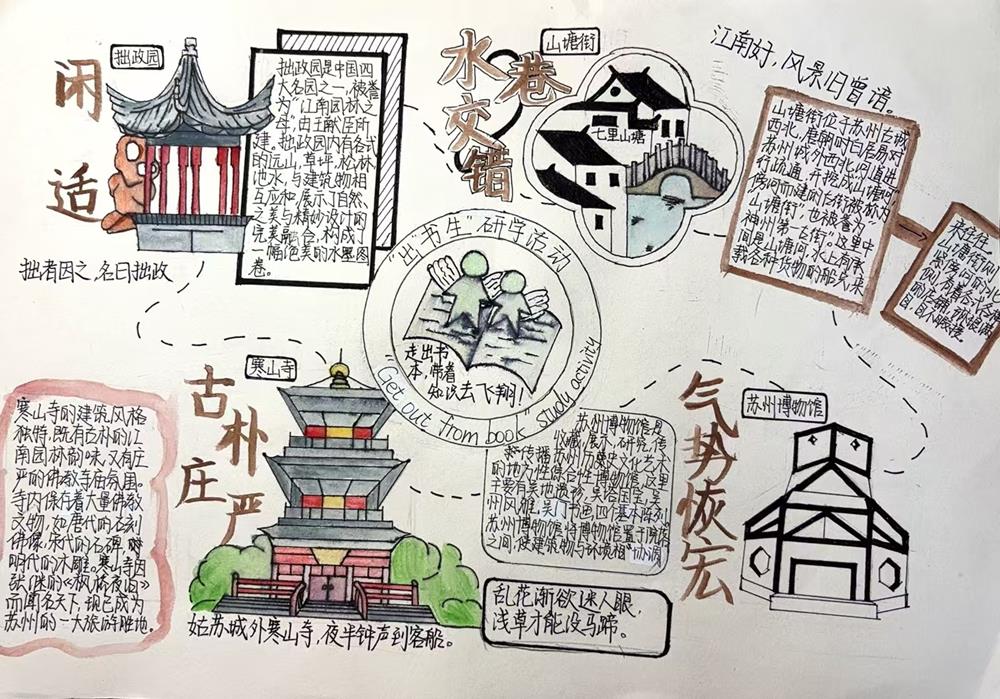 闲
适
拙政园
拙政园是中国四
大名园之一,被誉
为“江南园林之
母”由王献臣所
建。拙政园内有各式
的远山,草坪,松林
池水,与建筑物相
互应和,展示了自然
之美与精妙设计的
完美融合,构成了
一幅绝美的水墨图
卷。
拙者因之,名曰拙政
水巷
交错
山塘街
七里山塘
江南好,风景旧曾谙。
山塘街位于苏州古城
西北,唐朝时白居易对
苏州城外西北河道进
行疏通,开挖成山塘河,
傍河而建的古街被称为
山塘街,也被誉为“
神州第一古街”。这里中
间是山塘河,水上有承
载各种货物的船只来
来往往。
山塘街则
紧傍河的北
侧,有着各式各样
的店铺,
“出书生”研学活动
走出书
本,带着
知识去飞翔!
“Get out from book” study activity
古朴
庄严
寒山寺
寒山寺的建筑风格
独特,既有古朴的江
南园林韵味,又有庄
严的佛教寺庙氛围。
寺内保存着大量佛教
文物,如唐代的石刻
佛像,宋代的石碑,
明代的木雕。寒山寺因
张继的《枫桥夜泊》
而闻名天下,现已成为
苏州的一大旅游胜地。
姑苏城外寒山寺,夜半钟声到客船。
苏州博物馆是
收藏,展示,研究,传
播苏州历史文化艺术
的地方性综合性博物馆,这里
主要有吴地遗珍,吴塔国宝,吴
州风雅,吴门书画四个基本陈列
苏州博物馆将博物馆置于院落
之间,使建筑物与环境相协调
乱花渐欲迷人眼,
浅草才能没马蹄。
气势恢宏
苏州博物馆